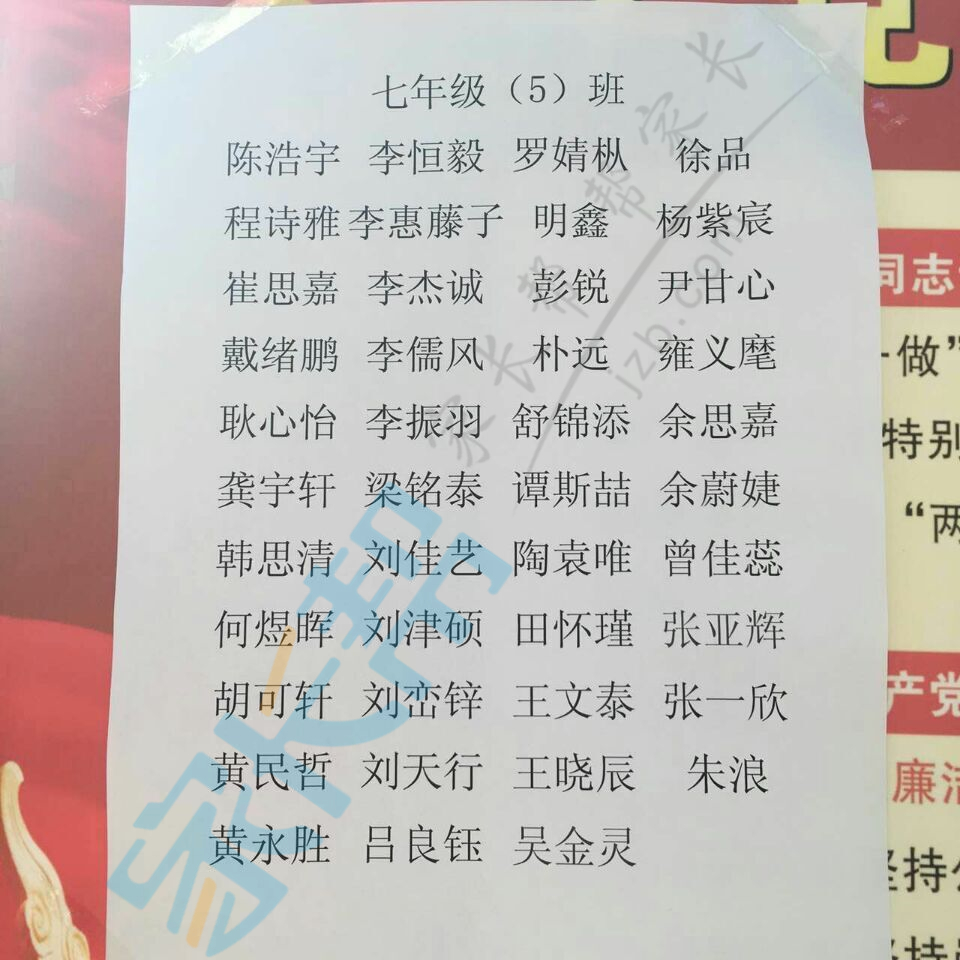 七年级（5）班
陈浩宇 李恒毅 罗婧枞 徐品
程诗雅 李惠藤子 明鑫 杨紫宸
崔思嘉 李杰诚 彭锐 尹甘心
戴绪鹏 李儒风 朴远 雍义麾
耿心怡 李振羽 舒锦添 余思嘉
龚宇轩 梁铭泰 谭斯喆 余蔚婕
韩思清 刘佳艺 陶袁唯 曾佳蕊
何煜晖 刘津硕 田怀瑾 张亚辉
胡可轩 刘峦锌 王文泰 张一欣
黄民哲 刘天行 王晓辰 朱浪
黄永胜 吕良钰 吴金灵
家长帮 帮家长
jzb.com
家长帮
同志
做”
特别
“两
产党
廉洁
坚持
坚持